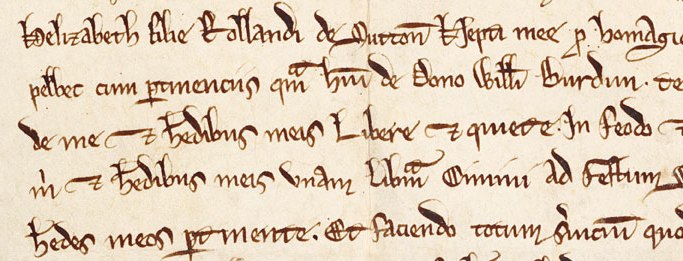 Helizabeth filie Rollandi de Sutton Nepti mee p homagio
pelbet cum ptinenciis qm hui de Dono Willi Burdun. te
de me et hedibus meis Libere et quiete. In feodo et
m et hedibus meis Unam libram Cimini ad Festum
hedes meos ptinente. Et faciendo totum svicium quod